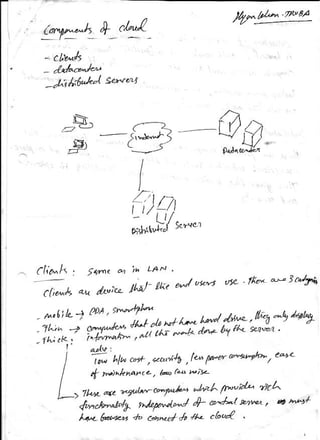 Components of cloud
- Clients
- datacenter
- distributed servers
internet
Datacenter
Distributed Server
Clients : Same as in LAN.
Clients are device that the end users use. There are 3 categories
- mobile → PDA, Smartphone
- Thin → Computers that do not have hard drive, they only display
- thick : information, all the work done by the server.
adv :
low h/w cost, security, less power consumption, ease
of maintenance, less noise.
These are regular computers which provides rich
functionality independent of central server, must
have browsers to connect to the cloud.